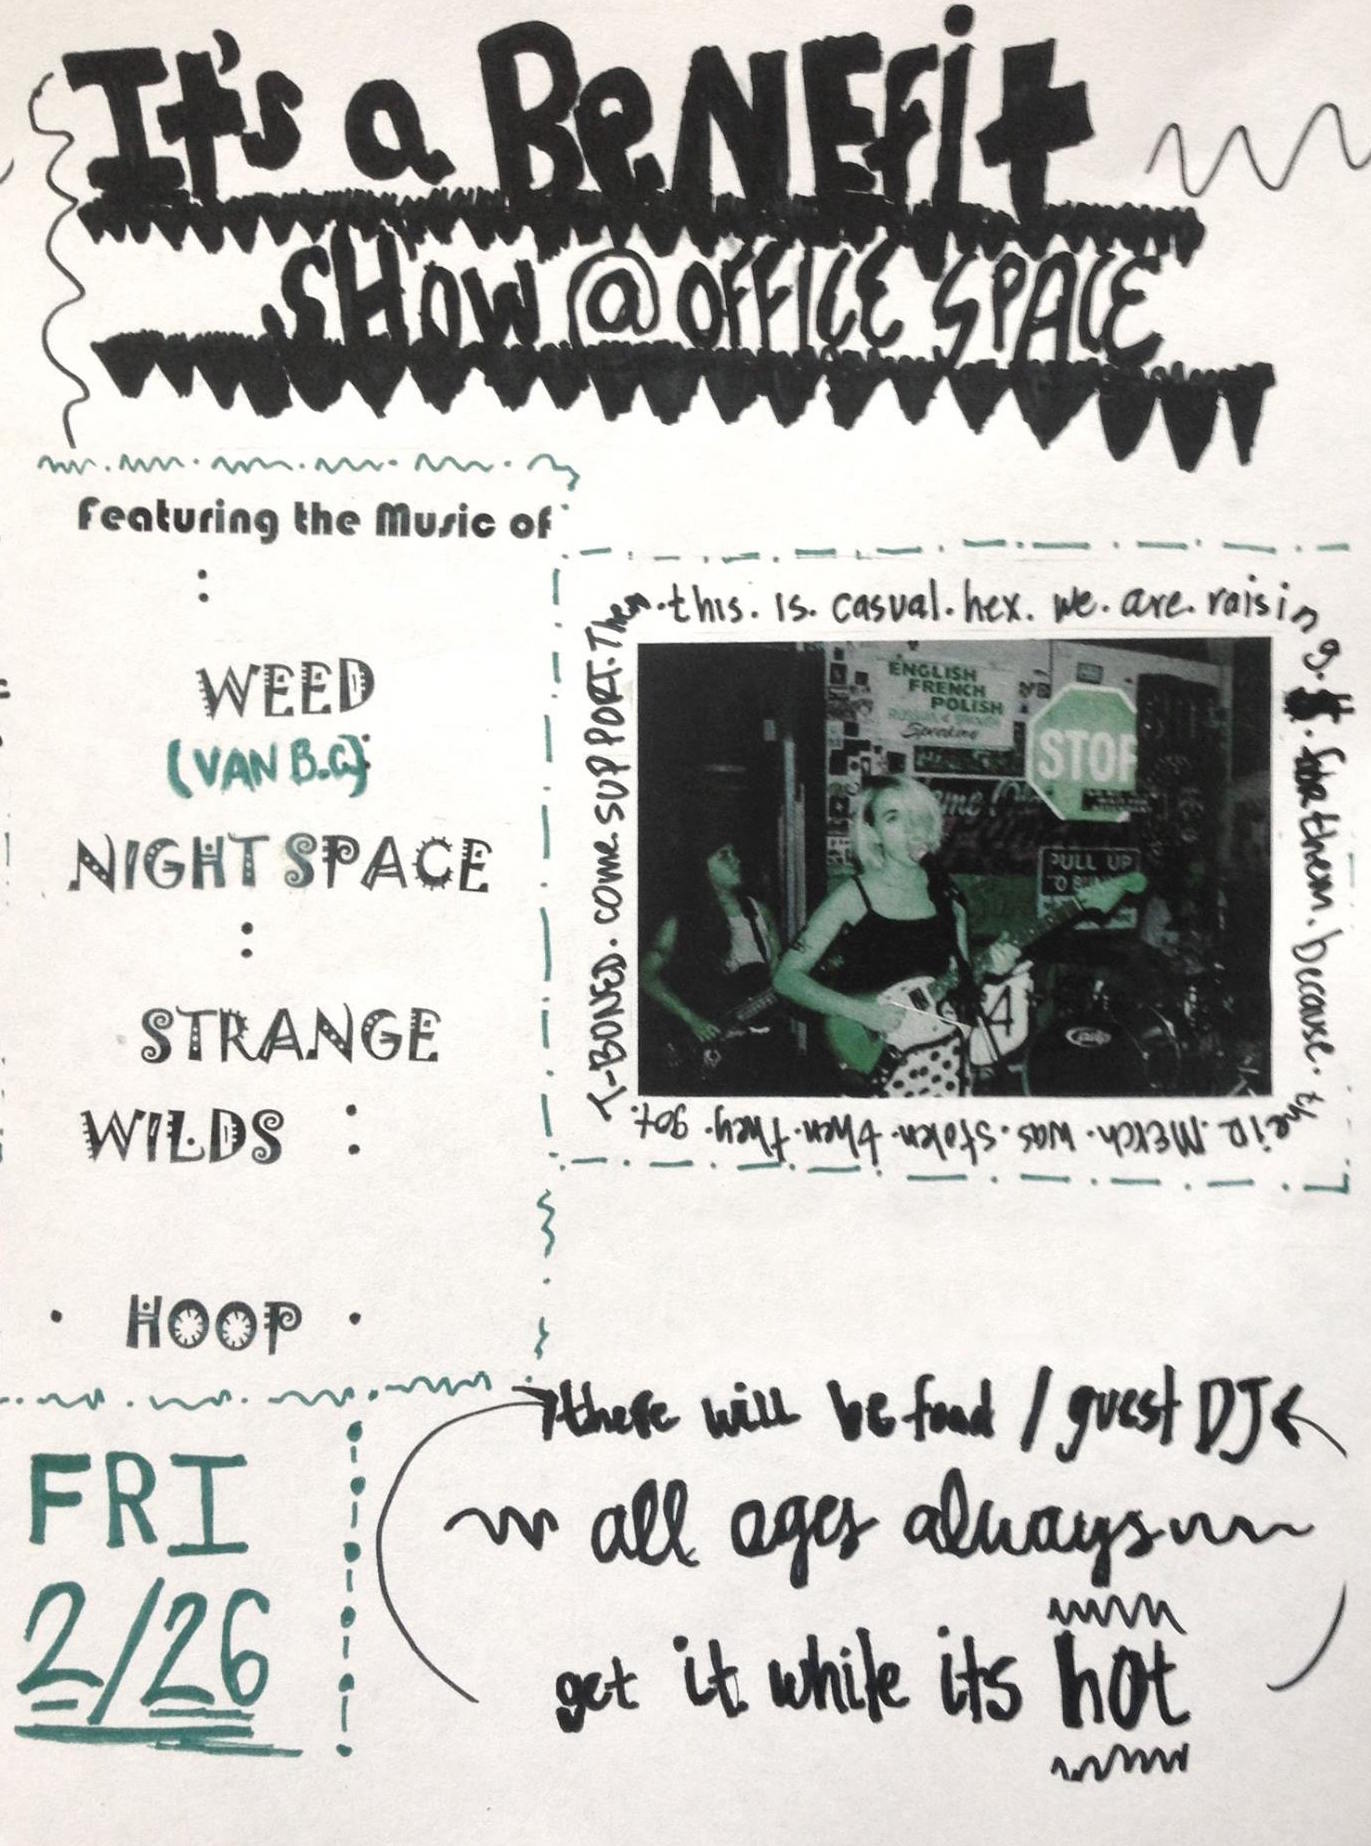 It's a BeNEfit
SHOW @ OFFICE SPACE
Featuring the Music of
:
WEED
(VAN B.C)
NIGHT SPACE
:
STRANGE
WILDS :
· HOOP ·
FRI
2/26
this. is. casual. hex. we. are. raising. $. for them. because. their. Merch. was. stolen. then. they. got. T-BONED. come. SUPPORT. Them.
ENGLISH
FRENCH
POLISH
Speaking
STOP
PULL UP
pdp
4
there will be food / guest DJ
all ages always
get it while its hot